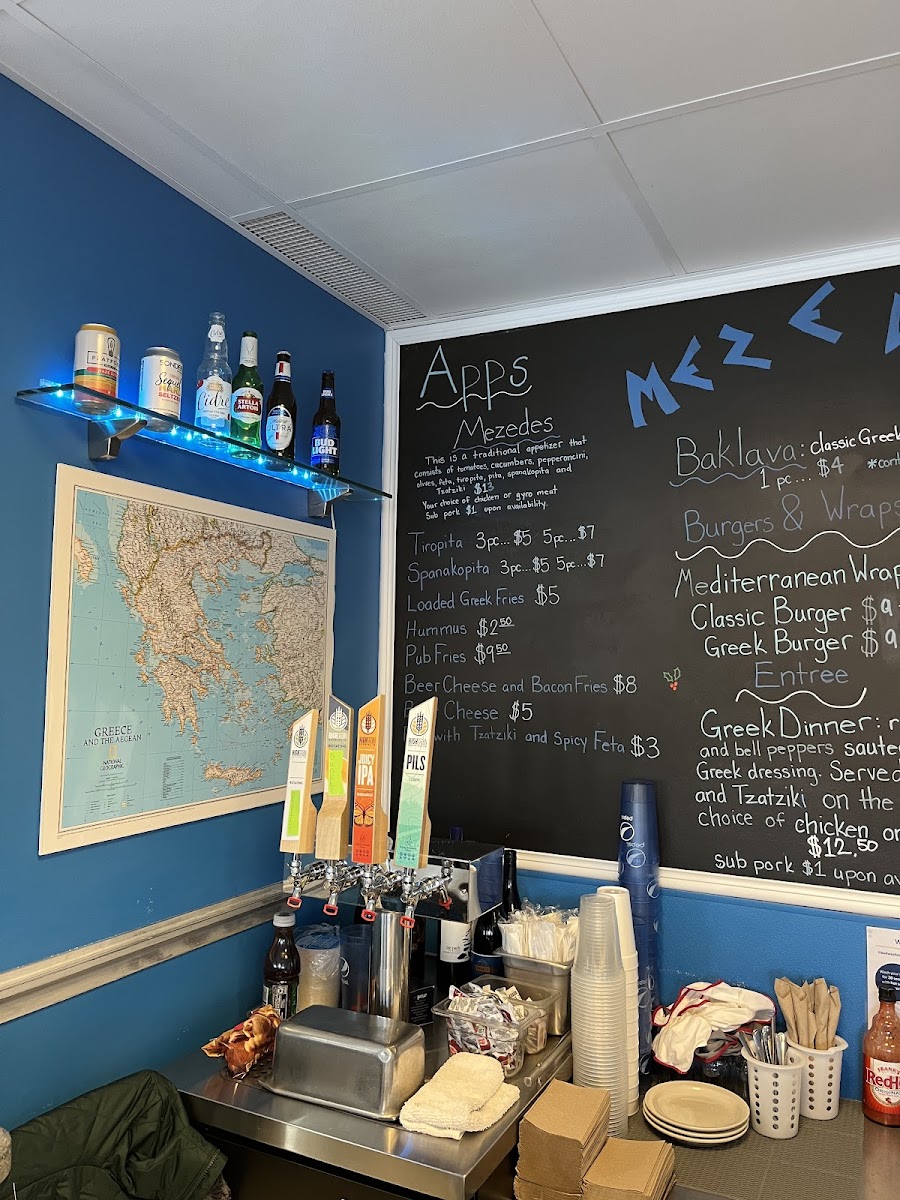 MEZE
Apps
Mezedes
This is a traditional appetizer that
consists of tomatoes, cucumbers, pepperoncini,
olives, feta, tiropita, pita, spanakopita and
Tzatziki $13
Your choice of chicken or gyro meat
Sub pork $1 upon availability.
Tiropita 3pc...$5 5pc...$7
Spanakopita 3pc...$5 5pc...$7
Loaded Greek Fries $5
Hummus $2.50
Pub Fries $9.50
Beer Cheese and Bacon Fries $8
Cheese $5
with Tzatziki and Spicy Feta $3
Baklava: classic Greek
1 pc.... $4 *cont
Burgers & Wraps
Mediterranean Wrap
Classic Burger $9
Greek Burger $9
Entree
Greek Dinner: r
and bell peppers saute
Greek dressing. Served
and Tzatziki on the
choice of chicken or
$12.50
sub pork $1 upon av
SONDER
HARD
SELTZER
Cidre
STELLA
ARTOIS
ULTRA
BUD
LIGHT
GREECE
AND THE AEGEAN
NATIONAL
GEOGRAPHIC
JUICY
IPA
PILS
FRANK'S
RedHot